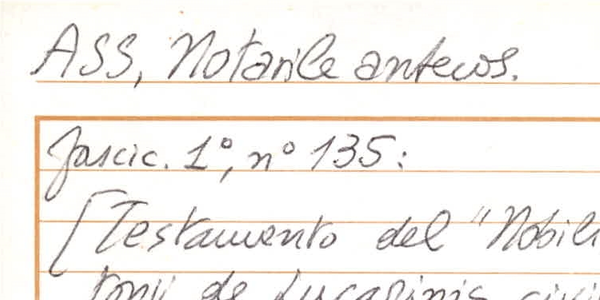 ASS, Notarile antecos.
fascic. 1°, n° 135:
[Testamento del "Nobili
tonii de Lucarinis civi